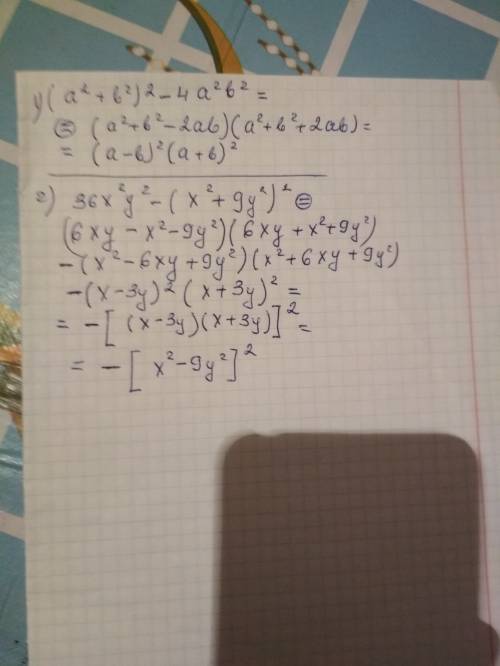 1) (a² + b²)² - 4a²b² =
⊜ (a² + b² - 2ab)(a² + b² + 2ab) =
= (a - b)² (a + b)²
2) 36x²y² - (x² + 9y²)² ⊜
(6xy - x² - 9y²)(6xy + x² + 9y²)
-(x² - 6xy + 9y²)(x² + 6xy + 9y²)
-(x - 3y)² (x + 3y)² =
= -[(x - 3y)(x + 3y)]² =
= -[x² - 9y²]²